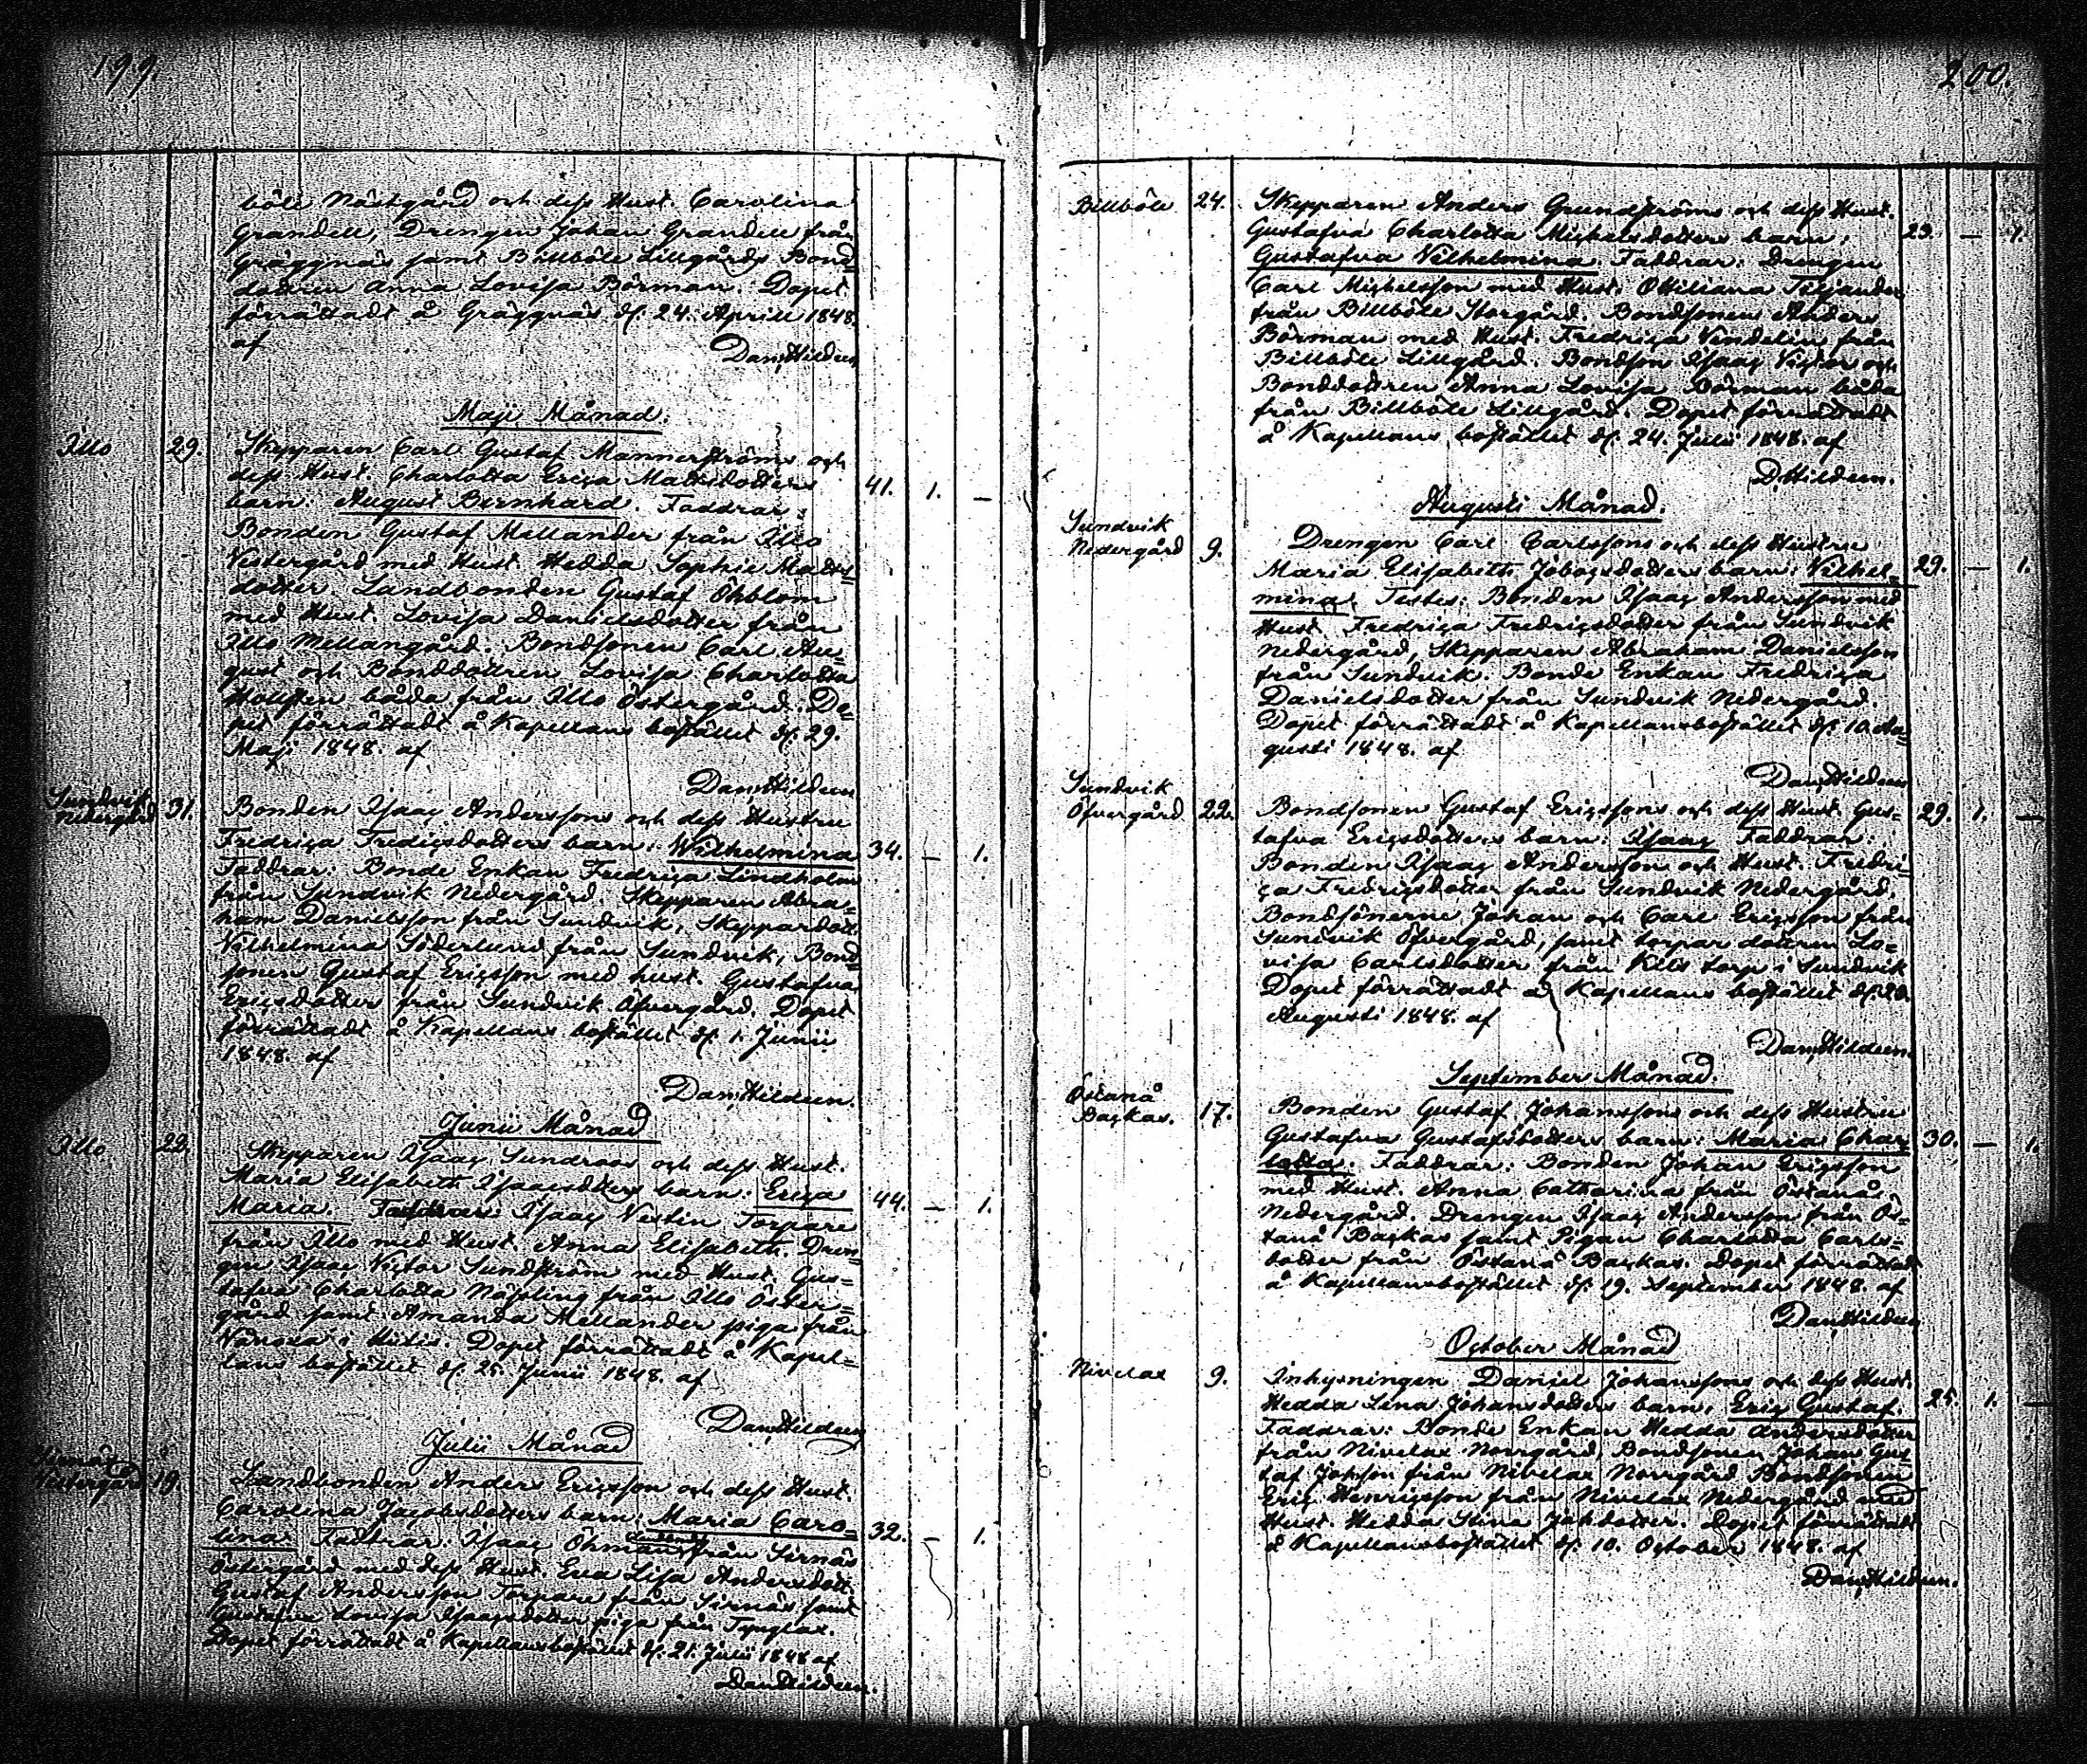 199.
böle Nästgård och dess Hust. Carolina
Grandell, Drengen Johan Grandell från
Gräggnäs samt Billböle Lillgårds Bond=
dottren Anna Lovisa Börman. Dopet
förrättadt å Gräggnäs d. 24. Aprill 1848.
af
Dan. Hildeen
Maji Månad.
Illo 29. Skepparen Carl Gustaf Mannerströms och
dess Hust. Charlotta Erica Mattsdotters
barn: August Bernhard. Faddrar: 41. 1. —
Bonden Gustaf Mellander från Illo
Vestergård med Hust. Hedda Sophie Matts=
dotter. Landbonden Gustaf Öhblom
med Hust. Lovisa Danielsdotter från
Illo Mellangård. Bondsonen Carl Au=
gust och Bonddottren Lovisa Charlotta
båda från Illo Östergård. Do=
pet förrättadt å Kapellans bostället d. 29.
Maji 1848. af
Dan. Hildeen
Sundvik
Nedergård 31. Bonden Isaac Anderssons och dess Hustru
Fredrica Fredricsdotters barn: Wilhelmina 34. — 1.
Faddrar: Bonde Enkan Fredrica Lindholm
från Sundvik Nedergård. Skepparen Abra=
ham Danielsson från Sundvik, Skeppardott.
Vilhelmina Söderlund från Sundvik, Bond=
sonen Gustaf Ericsson med hust. Gustafva
Ericsdotter från Sundvik Öfvergård. Dopet
förrättadt å Kapellans bostället d. 1. Junii
1848. af
Dan. Hildeen.
Junii Månad
Illo 22. Skepparen Isaac Sundroos och dess Hust.
Maria Elisabeth Isaacsdotters barn: Erica 44. — 1.
Maria. Faddrar: Isaac Vestin Torpare
från Illo med Hust. Anna Elisabeth. Dren=
gen Isaac Victor Sundström med Hust. Gus=
tafva Charlotta Nässling från Illo Öster=
gård samt Amanda Mellander piga från
Vänoxa i Hitis. Dopet förrättadt å Kapel=
lans bostället d. 25. Junii 1848. af
Dan. Hildeen
Julii Månad
Sirnäs
Vestergård 19. Landbonden Anders Ericsson och dess Hust.
Carolina Jacobsdotters barn: Maria Caro= 32. — 1.
lina. Faddrar: Isaac Öhman från Sirnäs
Östergård med dess Hust. Eva Lisa Andersdott.
Gustaf Andersson Torpare från Sirnäs samt
Gustafva Lovisa Isaacsdotter piga från Tynglax.
Dopet förrättadt å Kapellansbostället d. 21. Julii 1848 af
Dan. Hildeen.
200.
Billböle 24. Skepparen Anders Grundströms och dess Hust.
Gustafva Charlotta Michelsdotters barn: 23. — 1.
Gustafva Vilhelmina. Faddrar: Drengen
Carl Michelsson med Hust. Ottiliana Teljander
från Billböle Storgård. Bondsonen Anders
Börman med Hust. Fredrica Vendelin från
Billböle Lillgård. Bondson Isaac Victor och
Bonddottren Anna Lovisa Börman båda
från Billböle Lillgård. Dopet förrättadt
å Kapellans bostället d. 24. Julii 1848. af
D. Hildeen.
Augusti Månad.
Sundvik
Nedergård 9. Drengen Carl Carlssons och dess Hustru
Maria Elisabeth Jacobsdotters barn: Vilhel= 29. — 1.
mina. Testes: Bonden Isaac Andersson med
Hust. Fredrica Fredricsdotter från Sundvik
Nedergård, Skepparen Abraham Danielsson
från Sundvik. Bonde Enkan Fredrica
Danielsdotter från Sundvik Nedergård.
Dopet förrättadt å Kapellansbostället d. 10. Au=
gusti 1848. af
Dan. Hildeen
Sundvik
Öfvergård 22. Bondsonen Gustaf Ericssons och dess Hust. Gus= 29. 1. —
tafva Ericsdotters barn: Isaac Faddrar:
Bonden Isaac Andersson och Hust. Fredri=
ca Fredricsdotter från Sundvik Nedergård.
Bondsönerne Johan och Carl Ericsson från
Sundvik Öfvergård, samt torpar dottren Lo=
visa Carlsdotter från Kils torp i Sundvik
Dopet förrättadt å Kapellans bostället d.
Augusti 1848. af
Dan. Hildeen.
September Månad.
Östanå
Backas. 17. Bonden Gustaf Johanssons och dess Hustru
Gustafva Gustafsdotters barn: Maria Char= 30. — 1.
lotta. Faddrar: Bonden Johan Ericsson
med Hust. Anna Catharina från Östanå
Nedergård. Drengen Isaac Andersson från Ös=
tanå Backas samt Pigan Charlotta Carls=
dotter från Östanå Backas. Dopet förrättadt
å Kapellansbostället d. 19. September 1848. af
Dan. Hildeen
October Månad
Nivelax 9. Inhysningen Daniel Johanssons och dess Hust.
Hedda Lena Johansdotters barn: Eric Gustaf. 25. 1. —
Faddrar: Bonde Enkan Hedda Andersdotter
från Nivelax Norrgård, Bondsonen Johan Gus=
taf Johsson från Nivelax Norrgård Bondsonen
Eric Henricsson från Nivelax Nedergård med
Hust. Hedda Stina Johsdotter. Dopet förrättadt
å Kapellansbostället d. 10. October 1848. af
Dan. Hildeen.